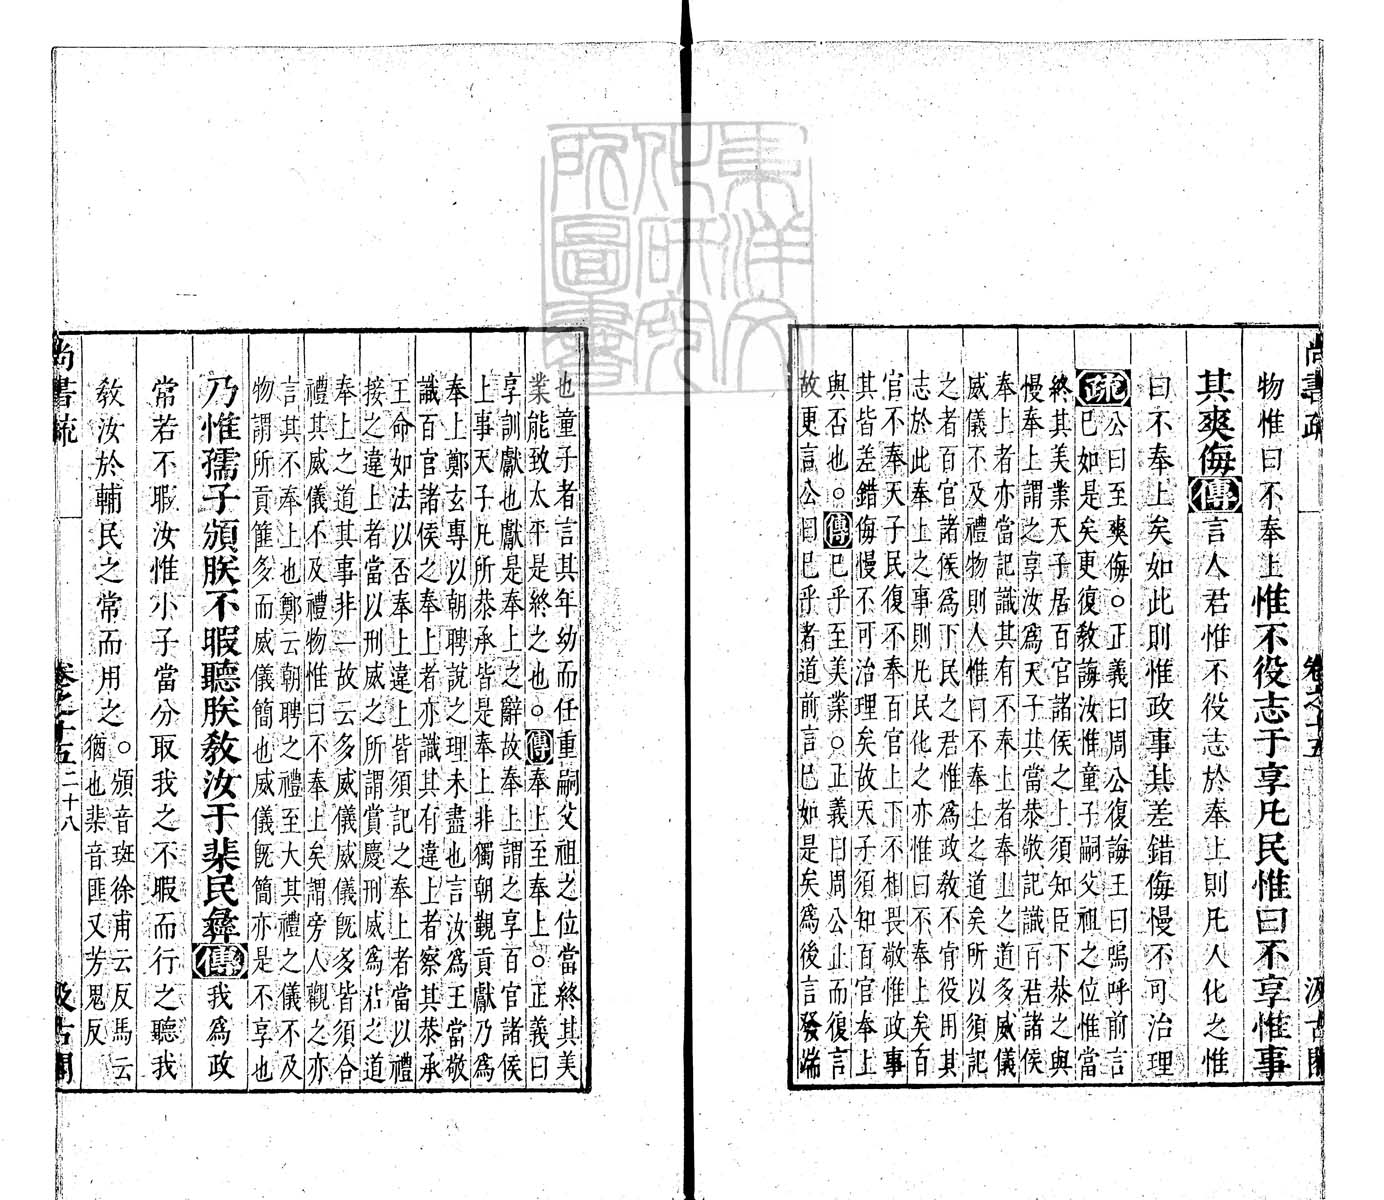 尚書疏
卷之十五
汲古閣
物惟曰不奉上惟不役志于享凡民惟曰不享惟事
其爽侮傳言人君惟不役志於奉上則凡人化之惟
曰不奉上矣如此則惟政事其差錯侮慢不可治理
疏公曰至爽侮○正義曰周公復誨王曰嗚呼前言
已如是矣更復教誨汝惟童子嗣父祖之位惟當
終其美業天子居百官諸侯之上須知臣下恭之與
慢奉上謂之享汝爲天子其當恭敬記識百君諸侯
奉上者亦當記識其有不奉上者奉上之道多威儀
威儀不及禮物則人惟曰不奉上之道矣所以須記
之者百官諸侯爲下民之君惟爲政教不肯役用其
志於此奉上之事則凡民化之亦惟曰不奉上矣百
官不奉天子民復不奉百官上下不相畏敬惟政事
其皆差錯侮慢不可治理矣故天子須知百官奉上
與否也○傳已乎至美業○正義曰周公止而復言
故更言公曰已乎者道前言已如是矣爲後言發端
也童子者言其年幼而任重嗣父祖之位當終其美
業能致太平是終之也○傳奉上至奉上○正義曰
享訓獻也獻是奉上之辭故奉上謂之享百官諸侯
上事天子凡所恭承皆是奉上非獨朝覲貢獻乃爲
奉上鄭玄專以朝聘說之理未盡也言汝爲王當敬
識百官諸侯之奉上者亦識其有違上者察其恭承
王命如法以否奉上違上皆須記之奉上者當以禮
接之違上者當以刑威之所謂賞慶刑威爲君之道
奉上之道其事非一故云多威儀威儀既多皆須合
禮其威儀不及禮物惟曰不奉上矣謂旁人觀之亦
言其不奉上也鄭云朝聘之禮至大其禮之儀不及
物謂所貢篚多而威儀簡也威儀既簡亦是不享也
乃惟孺子頒朕不暇聽朕教汝于棐民彝傳我爲政
常若不暇汝惟小子當分取我之不暇而行之聽我
教汝於輔民之常而用之○頒音班徐甫云反馬云
猶也棐音匪又芳鬼反
尚書疏
卷之十五
二十八
汲古閣
東洋文化研究所圖書